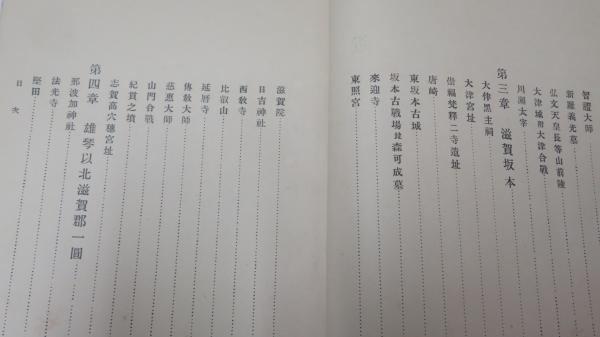 智證大師
新羅義光墓
弘文天皇長等山前陵
大津城附大津合戰
川瀨太宰
第三章 滋賀坂本
大伴黑主祠
大津宮址
崇福梵釋二寺遺址
唐崎
東坂本古城
坂本古戰場並森可成墓
來迎寺
東照宮
滋賀院
日吉神社
西敎寺
比叡山
延曆寺
傳敎大師
慈惠大師
山門合戰
紀貫之墳
志賀高穴穗宮址
第四章 雄琴以北滋賀郡一圓
那波加神社
法光寺
堅田
目次